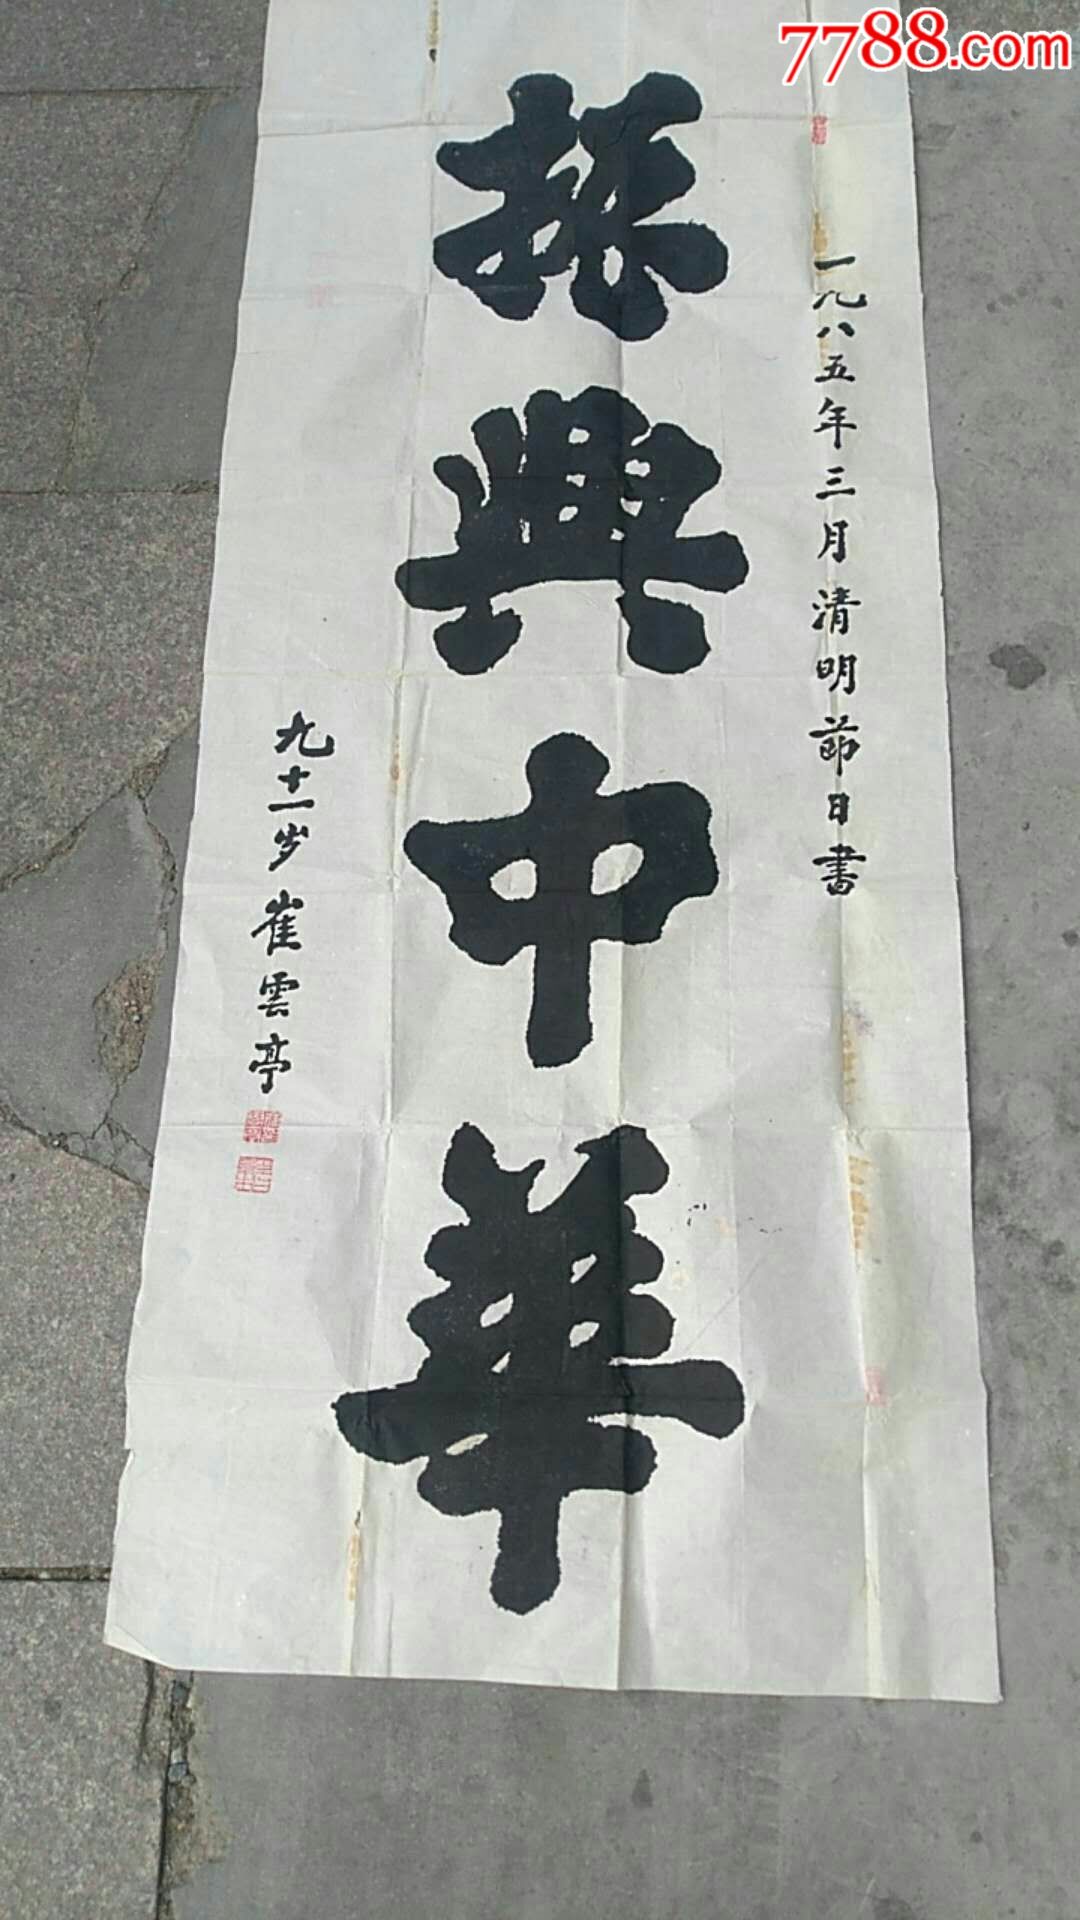 7788.com
一九八五年三月清明節日書
振興中華
九十一岁崔雲亭